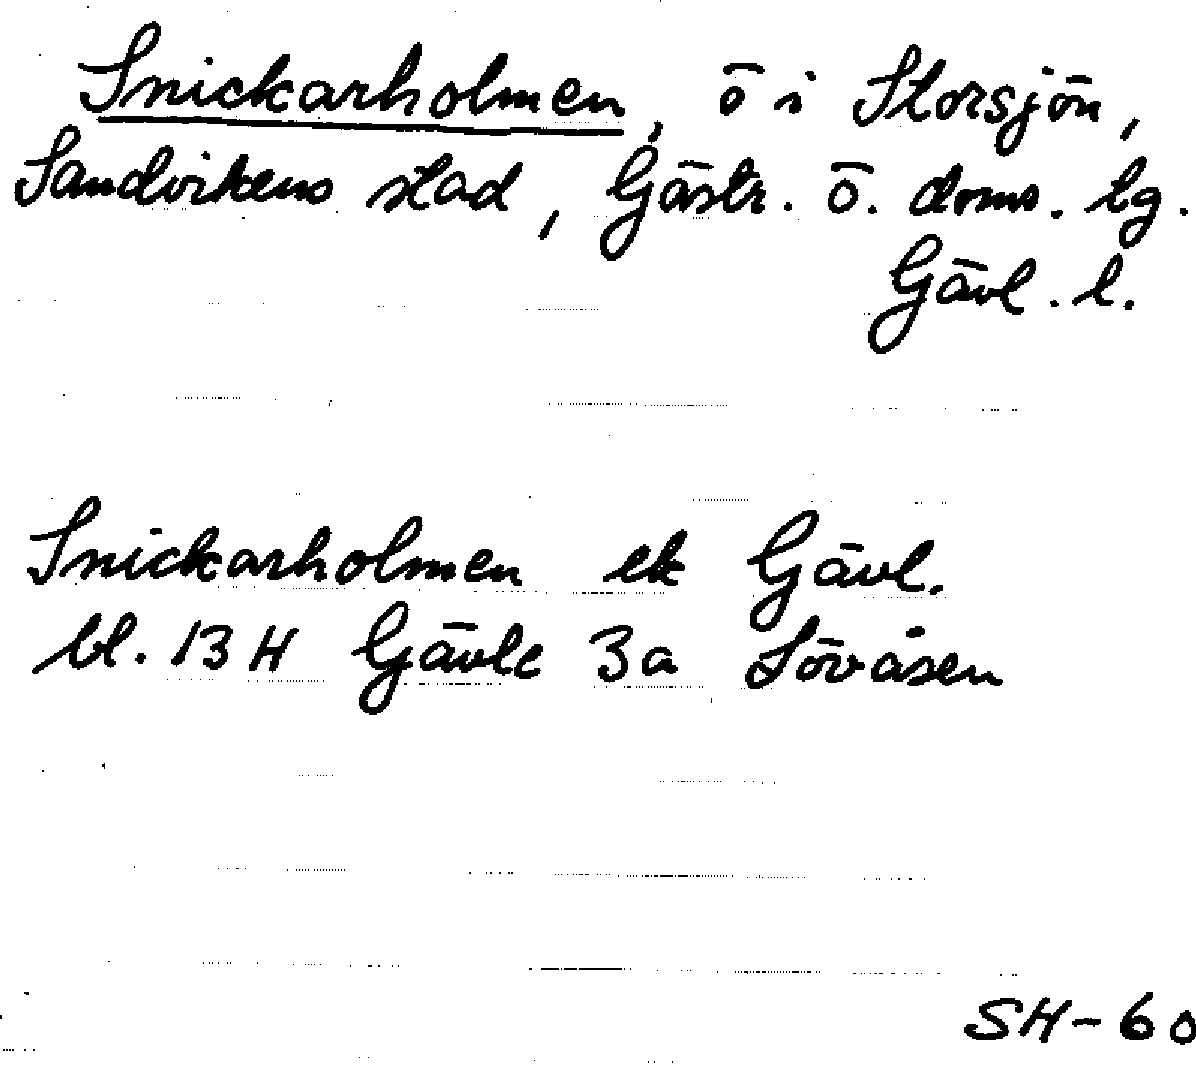 Snickarholmen, ö i Storsjön,
Sandvikens stad, Gästr. ö. doms. lg.
Gävl. l.
Snickarholmen ek Gävl.
bl. 13 H Gävle 3a Lövåsen
SH-60